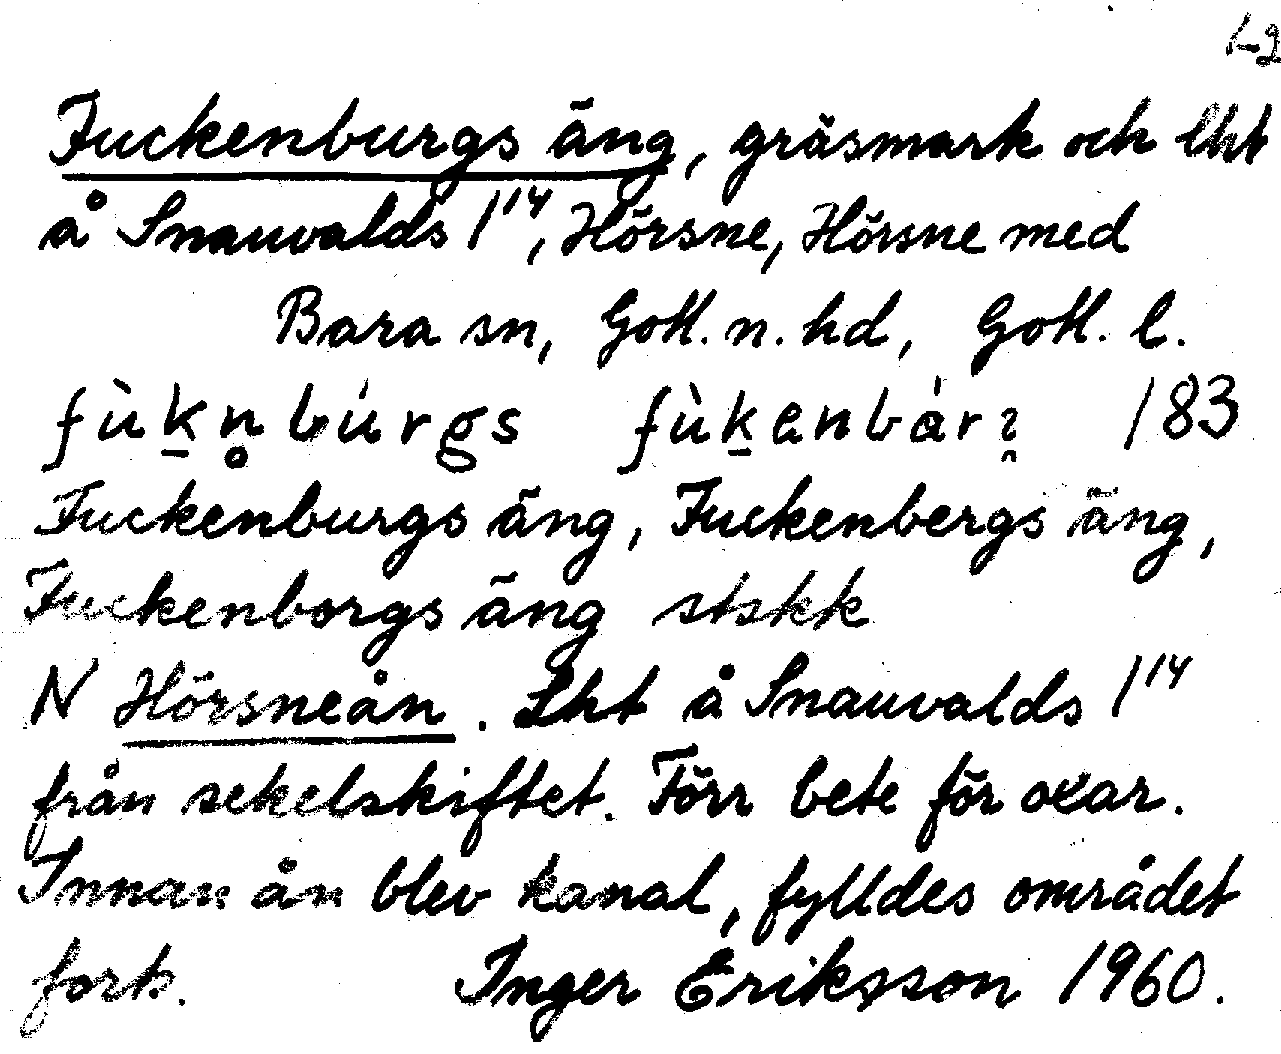 1-2
Fuckenburgs äng, gräsmark och lht
å Snauvalds 1¹⁴, Hörsne, Hörsne med
Bara sn, Gotl. n. hd, Gotl. l.
183
Fuckenburgs äng, Fuckenbergs äng,
Fuckenborgs äng stskk
N Hörsneån. Lht å Snauvalds 1¹⁴
från sekelskiftet. Förr bete för oxar.
Innan ån blev kanal, fylldes området
forts. Inger Eriksson 1960.